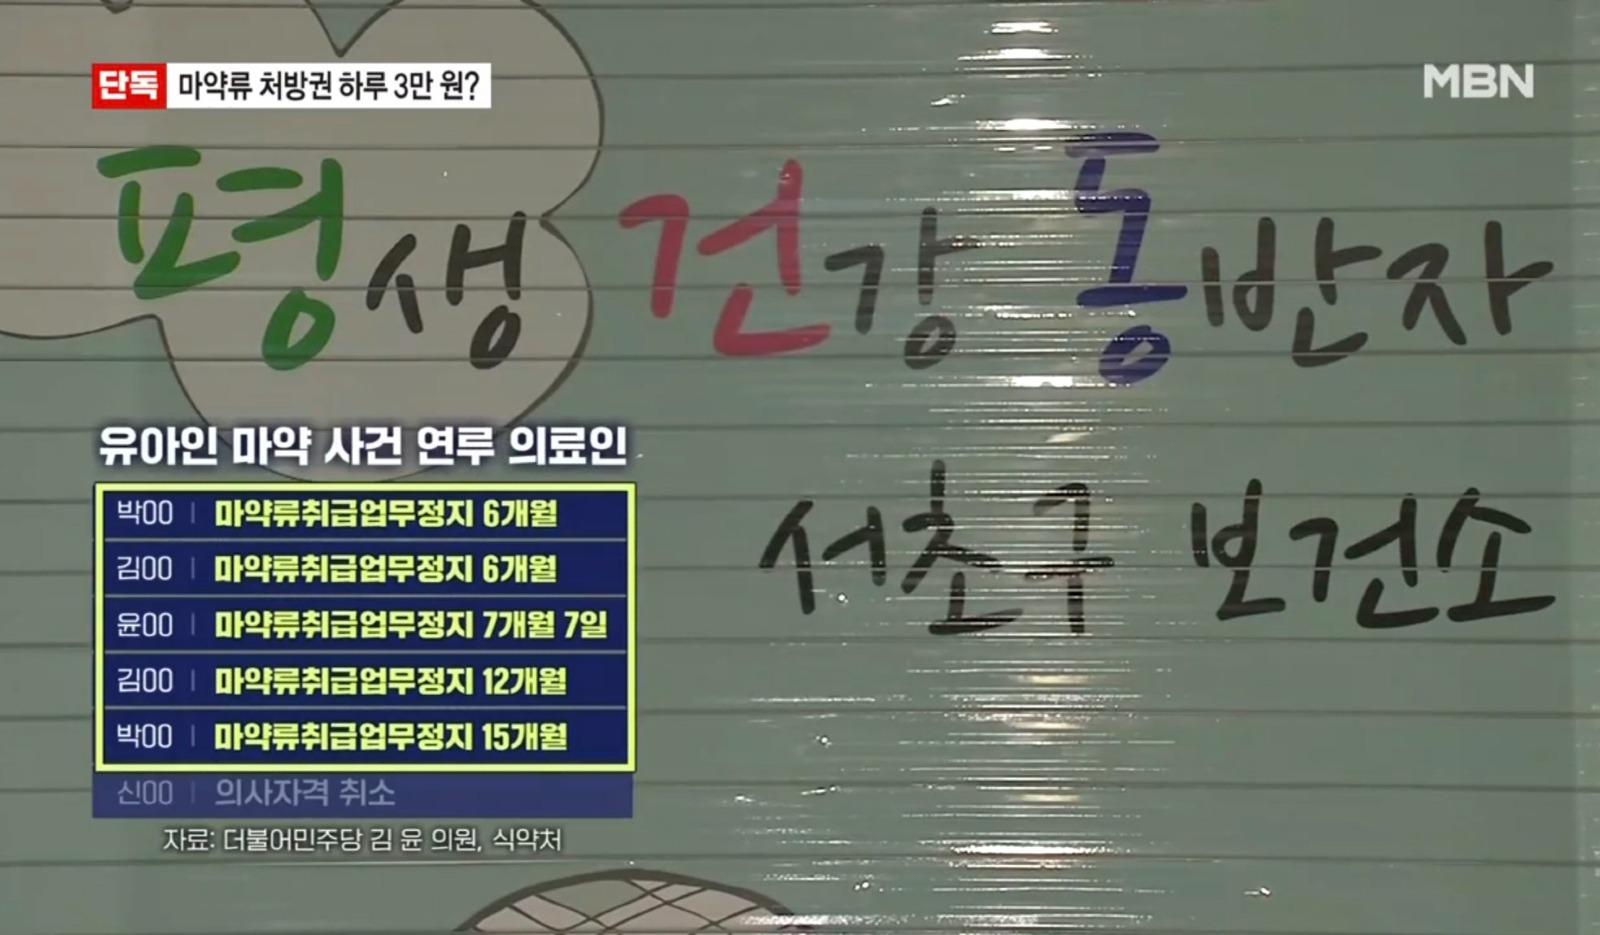 단독 마약류 처방권 하루 3만 원?
MBN
평생 건강 동반자
서초구 보건소
유아인 마약 사건 연루 의료인
박OO | 마약류취급업무정지 6개월
김OO | 마약류취급업무정지 6개월
윤OO | 마약류취급업무정지 7개월 7일
김OO | 마약류취급업무정지 12개월
박OO | 마약류취급업무정지 15개월
신OO | 의사자격 취소
자료: 더불어민주당 김 윤 의원, 식약처